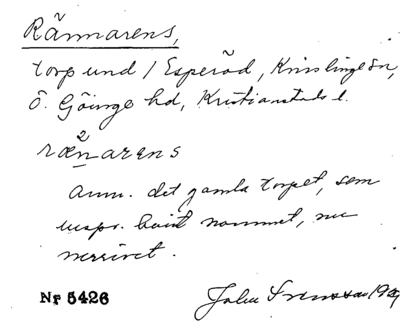 Rännarens,
torp und / Esperöd, Knislinge sn,
Ö. Göinge hd, Kristianstads l.
2
rænarens
Anm. det gamla torpet, som
urspr. burit namnet, nu
nerrivet.
Nr 5426 John Svensson